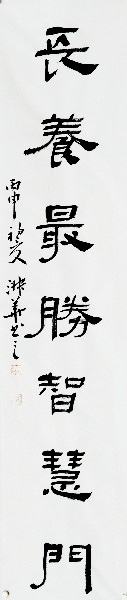 長養最勝智慧門
丙申初夏淋華書之